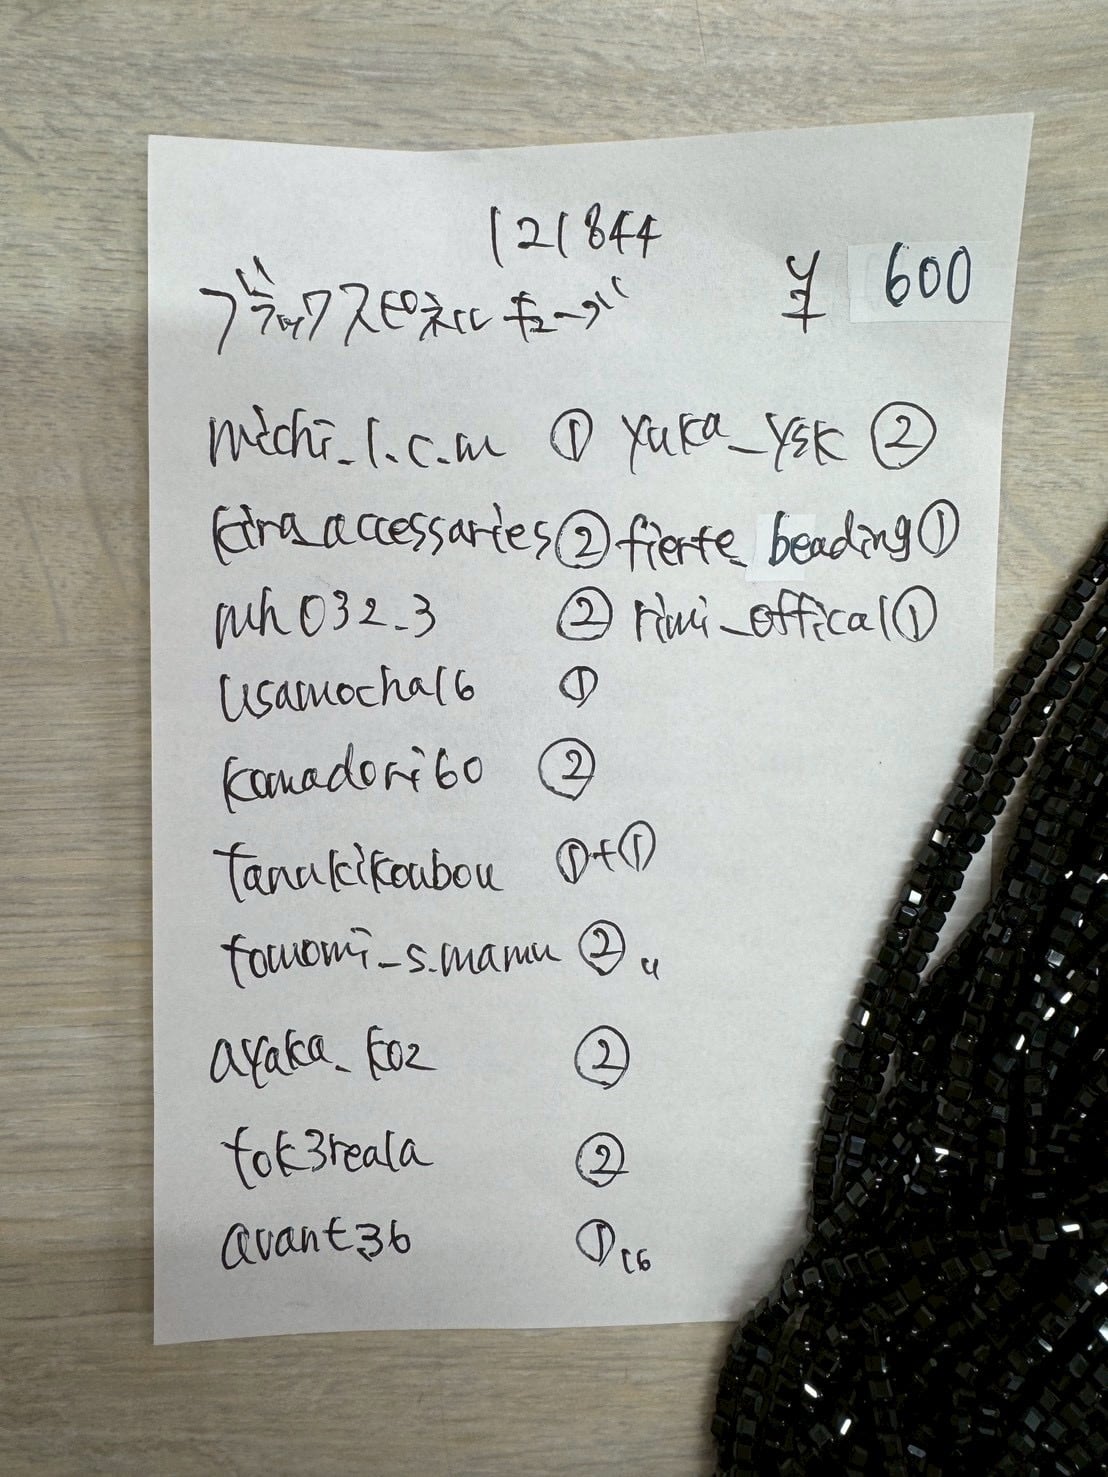 121844
ブラックスピネルキューブ ¥ 600
michi_l.c.m ① yuka_ysk ②
kira_accessaries ② fierte_beading ①
mh032_3 ② rimi_offical ①
usamocha16 ①
komadori60 ②
tanukikoubou ①+①
tomomi_s.mamu ② 4
ayaka_koz ②
tok3reala ②
avant36 ① 16